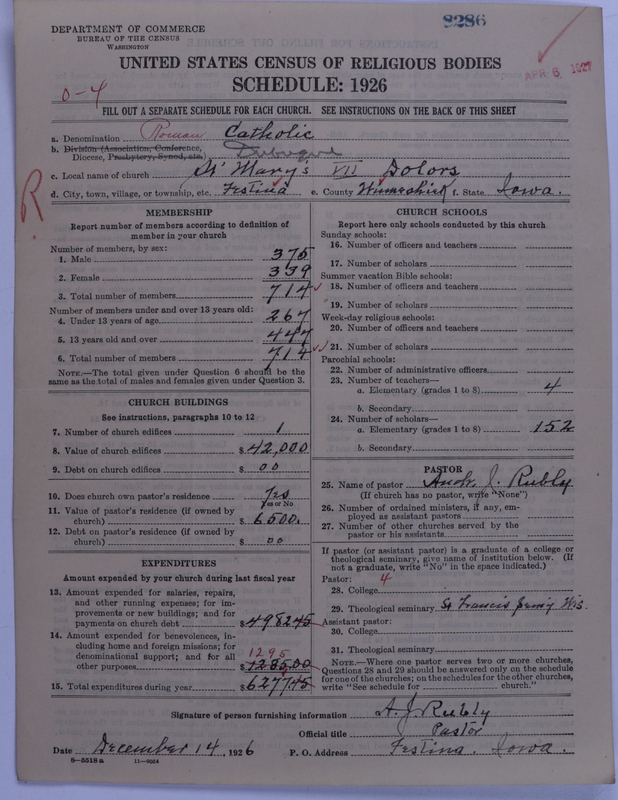 8286
DEPARTMENT OF COMMERCE
BUREAU OF THE CENSUS
WASHINGTON
UNITED STATES CENSUS OF RELIGIOUS BODIES
APR 6 1927
SCHEDULE: 1926
0-4
FILL OUT A SEPARATE SCHEDULE FOR EACH CHURCH. SEE INSTRUCTIONS ON THE BACK OF THIS SHEET
a. Denomination Roman Catholic
b. Division (Association, Conference,
Diocese, Presbytery, Synod, etc.) Dubuque
c. Local name of church St Mary's VII Dolors
R
d. City, town, village, or township, etc. Festina e. County Winneshiek f. State Iowa.
MEMBERSHIP
Report number of members according to definition of
member in your church
Number of members, by sex:
1. Male 375
2. Female 339
3. Total number of members 714
Number of members under and over 13 years old:
4. Under 13 years of age 267
5. 13 years old and over 447
6. Total number of members 714
NOTE.—The total given under Question 6 should be the
same as the total of males and females given under Question 3.
CHURCH BUILDINGS
See instructions, paragraphs 10 to 12
7. Number of church edifices 1
8. Value of church edifices $ 42,000
9. Debt on church edifices $ 00
10. Does church own pastor's residence Yes
Yes or No
11. Value of pastor's residence (if owned by
church) $ 6500.
12. Debt on pastor's residence (if owned by
church) $ 00
EXPENDITURES
Amount expended by your church during last fiscal year
13. Amount expended for salaries, repairs,
and other running expenses; for im-
provements or new buildings; and for
payments on church debt $ 4982 45
14. Amount expended for benevolences, in-
cluding home and foreign missions; for
denominational support; and for all
other purposes 1295 $ 1285.00
15. Total expenditures during year $ 6277 45
CHURCH SCHOOLS
Report here only schools conducted by this church
Sunday schools:
16. Number of officers and teachers
17. Number of scholars
Summer vacation Bible schools:
18. Number of officers and teachers
19. Number of scholars
Week-day religious schools:
20. Number of officers and teachers
21. Number of scholars
Parochial schools:
22. Number of administrative officers
23. Number of teachers—
a. Elementary (grades 1 to 8) 4
b. Secondary
24. Number of scholars—
a. Elementary (grades 1 to 8) 152
b. Secondary
PASTOR
25. Name of pastor Andr. J. Rubly
(If church has no pastor, write "None")
26. Number of ordained ministers, if any, em-
ployed as assistant pastors
27. Number of other churches served by the
pastor or his assistants
If pastor (or assistant pastor) is a graduate of a college or
theological seminary, give name of institution below. (If
not a graduate, write "No" in the space indicated.)
Pastor: 4
28. College
29. Theological seminary St Francis Wis.
Assistant pastor:
30. College
31. Theological seminary
NOTE.—Where one pastor serves two or more churches,
Questions 28 and 29 should be answered only on the schedule
for one of the churches; on the schedules for the other churches,
write "See schedule for church."
Signature of person furnishing information A. J. Rubly
Official title Pastor
Date December 14, 1926 P. O. Address Festina, Iowa.
8-5518 a 11-9024